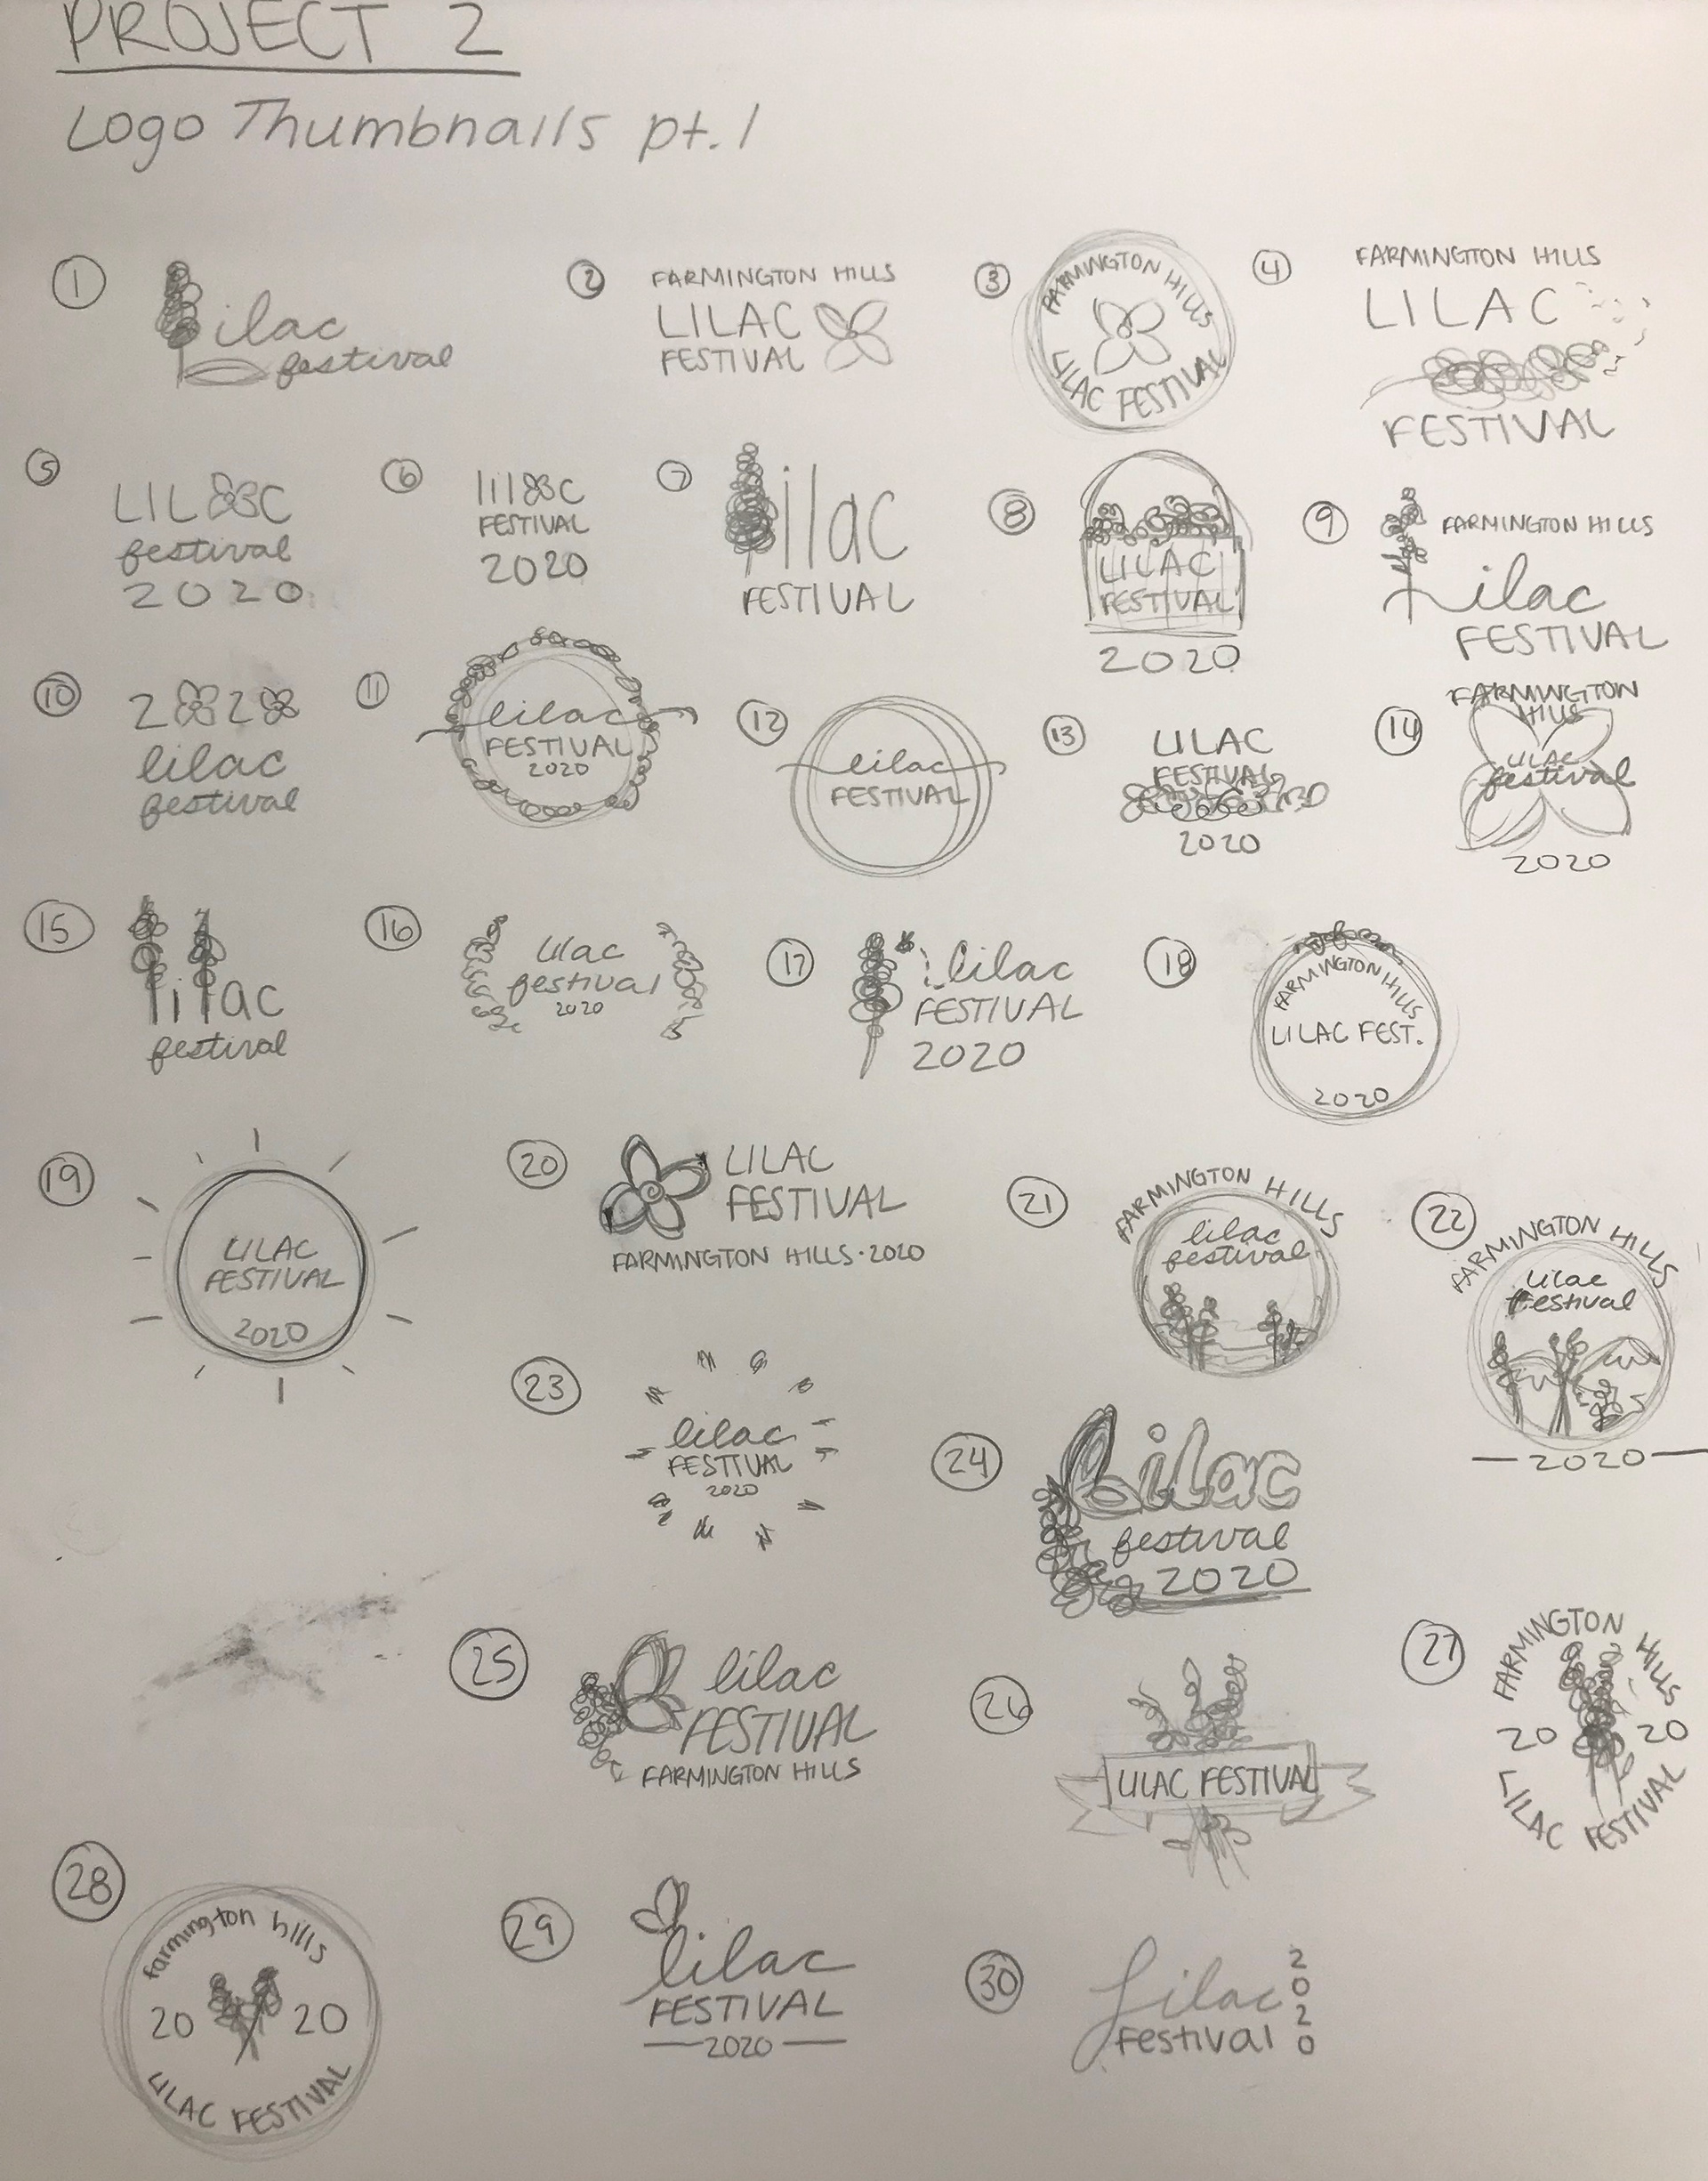 PROJECT 2
Logo Thumbnails pt. 1
1
ilac
festival
2
FARMINGTON HILLS
LILAC
FESTIVAL
3
FARMINGTON HILLS
LILAC FESTIVAL
4
FARMINGTON HILLS
LILAC
FESTIVAL
5
LIL C
festival
2020
6
lil c
FESTIVAL
2020
7
ilac
FESTIVAL
8
LILAC
FESTIVAL
2020
9
FARMINGTON HILLS
ilac
FESTIVAL
10
2 2
lilac
festival
11
lilac
FESTIVAL
2020
12
lilac
FESTIVAL
13
LILAC
FESTIVAL
2020
14
FARMINGTON
HILLS
LILAC
festival
2020
15
lilac
festival
16
lilac
festival
2020
17
lilac
FESTIVAL
2020
18
FARMINGTON HILLS
LILAC FEST.
2020
19
LILAC
FESTIVAL
2020
20
LILAC
FESTIVAL
FARMINGTON HILLS · 2020
21
FARMINGTON HILLS
lilac
festival
22
FARMINGTON HILLS
lilac
festival
2020
23
lilac
FESTIVAL
2020
24
lilac
festival
2020
25
lilac
FESTIVAL
FARMINGTON HILLS
26
LILAC FESTIVAL
27
FARMINGTON HILLS
20 20
LILAC FESTIVAL
28
farmington hills
20 20
LILAC FESTIVAL
29
lilac
FESTIVAL
2020
30
lilac
festival
2020